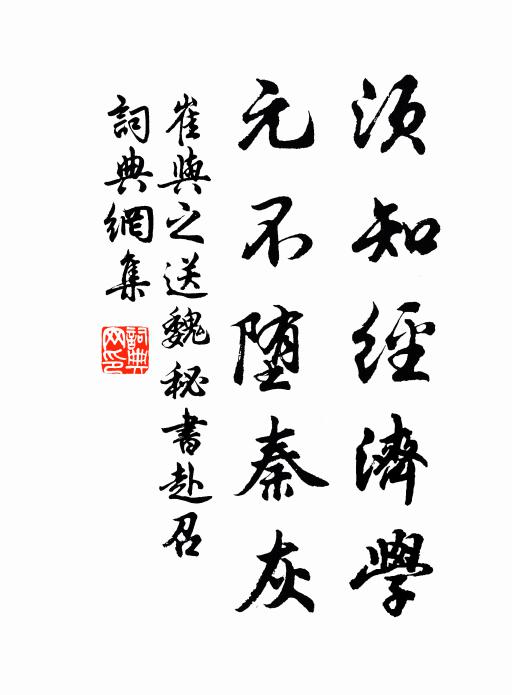 須知經濟學
元不堕秦灰
崔與之送魏秘書赴召
詞典網集
詞典网印